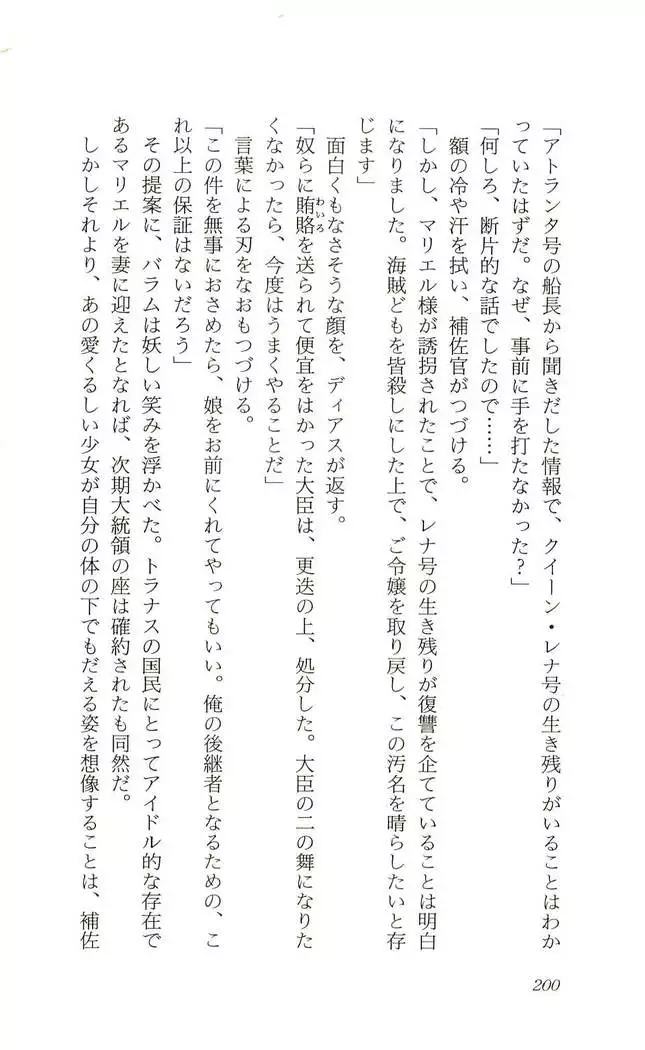 「アトランタ号の船長から聞きだした情報で、クイーン・レナ号の生き残りがいることはわか
っていたはずだ。なぜ、事前に手を打たなかった?」
「何しろ、断片的な話でしたので……」
額の冷や汗を拭い、補佐官がつづける。
「しかし、マリエル様が誘拐されたことで、レナ号の生き残りが復讐を企てていることは明白
になりました。海賊どもを皆殺しにした上で、ご令嬢を取り戻し、この汚名を晴らしたいと存
じます」
面白くもなさそうな顔を、ディアスが返す。
「奴らに賄賂を送られて便宜をはかった大臣は、更迭の上、処分した。大臣の二の舞になりた
わいろ
くなかったら、今度はうまくやることだ」
言葉による刃をなおもつづける。
「この件を無事におさめたら、娘をお前にくれてやってもいい。俺の後継者となるための、こ
れ以上の保証はないだろう」
その提案に、バラムは妖しい笑みを浮かべた。トラナスの国民にとってアイドル的な存在で
あるマリエルを妻に迎えたとなれば、次期大統領の座は確約されたも同然だ。
しかしそれより、あの愛くるしい少女が自分の体の下でもだえる姿を想像することは、補佐
200